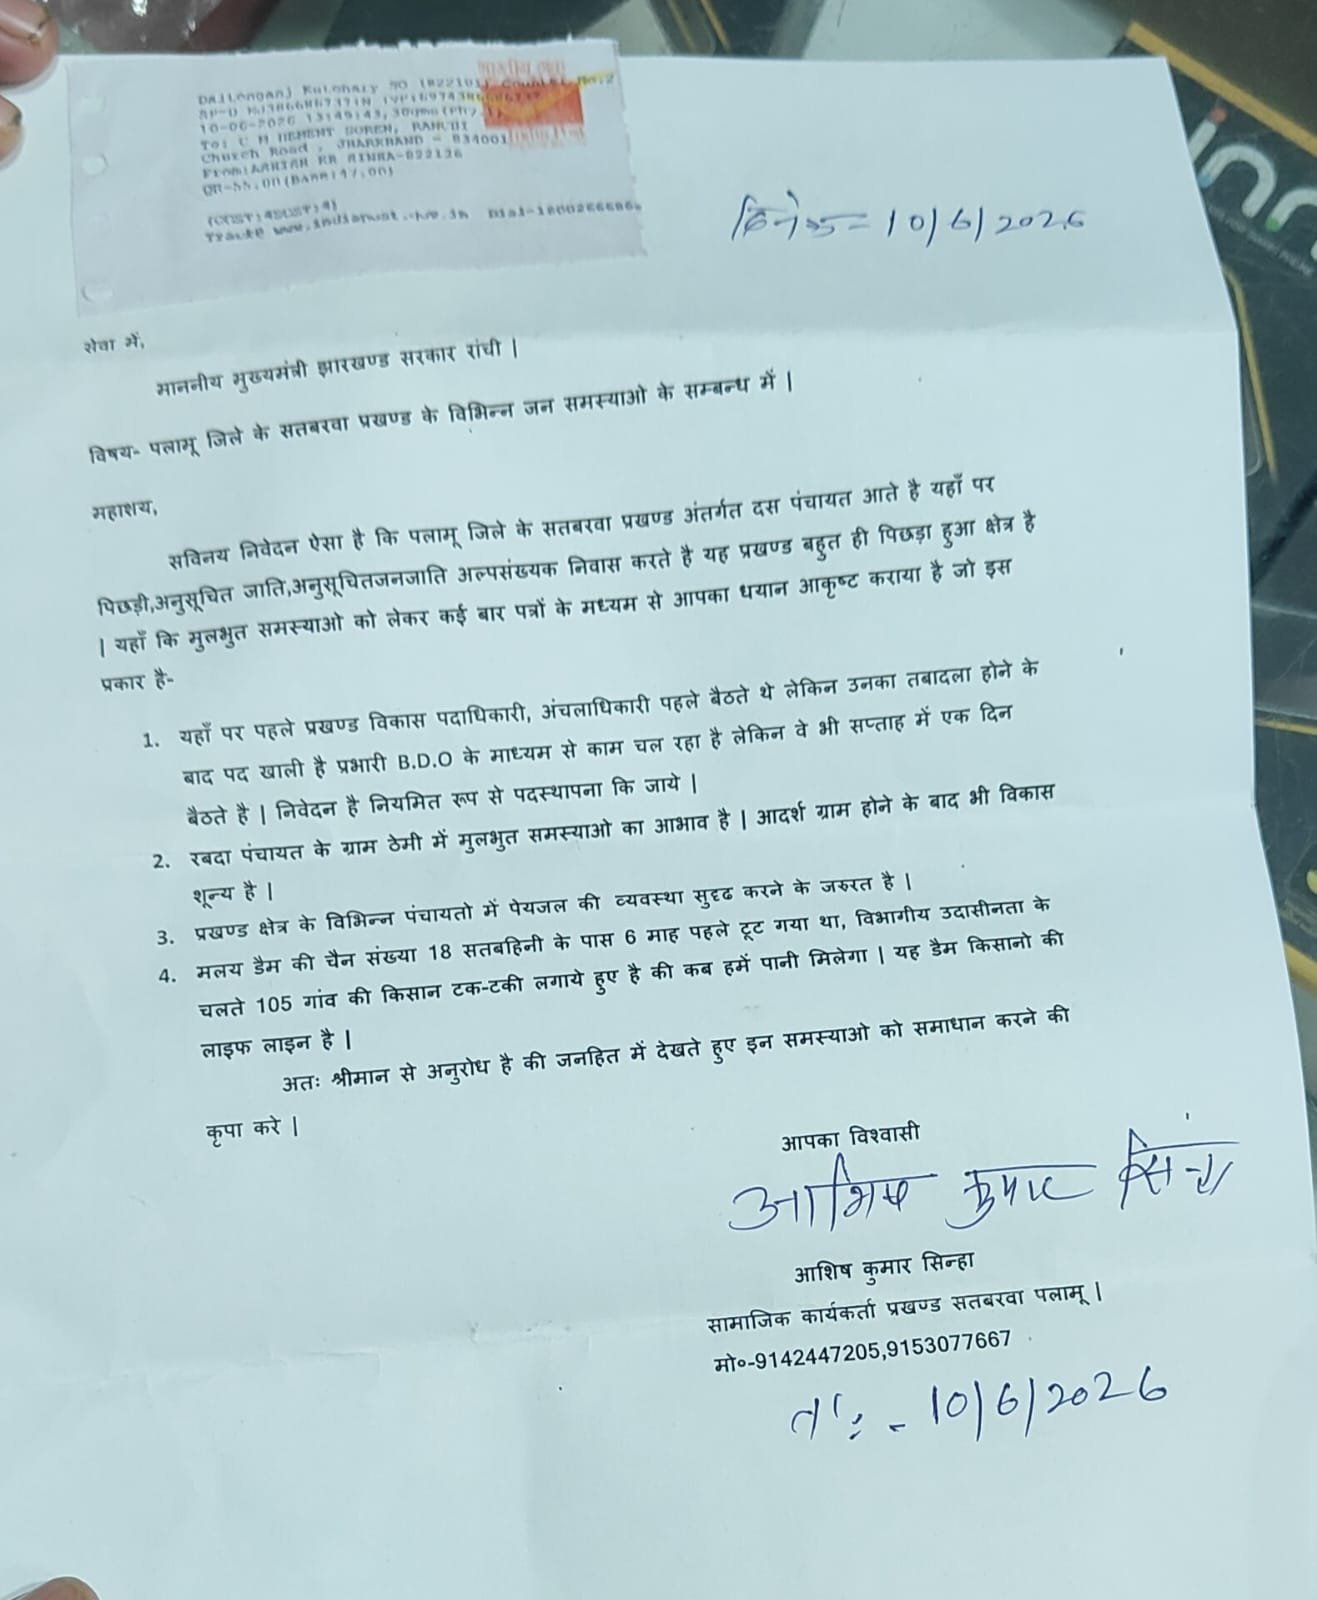 10-06-2026 13:49:43,
Church Road , JHARKHAND - 834001
दिनांक = 10/6/2026
सेवा में,
माननीय मुख्यमंत्री झारखण्ड सरकार रांची |
विषय- पलामू जिले के सतबरवा प्रखण्ड के विभिन्न जन समस्याओ के सम्बन्ध में |
महाशय,
सविनय निवेदन ऐसा है कि पलामू जिले के सतबरवा प्रखण्ड अंतर्गत दस पंचायत आते है यहाँ पर
पिछड़ी,अनुसूचित जाति,अनुसूचितजनजाति अल्पसंख्यक निवास करते है यह प्रखण्ड बहुत ही पिछड़ा हुआ क्षेत्र है
| यहाँ कि मुलभुत समस्याओ को लेकर कई बार पत्रों के मध्यम से आपका धयान आकृष्ट कराया है जो इस
प्रकार है-
1. यहाँ पर पहले प्रखण्ड विकास पदाधिकारी, अंचलाधिकारी पहले बैठते थे लेकिन उनका तबादला होने के
बाद पद खाली है प्रभारी B.D.O के माध्यम से काम चल रहा है लेकिन वे भी सप्ताह में एक दिन
बैठते है | निवेदन है नियमित रूप से पदस्थापना कि जाये |
2. रबदा पंचायत के ग्राम ठेमी में मुलभुत समस्याओ का आभाव है | आदर्श ग्राम होने के बाद भी विकास
शून्य है |
3. प्रखण्ड क्षेत्र के विभिन्न पंचायतो में पेयजल की व्यवस्था सुदृढ करने के जरुरत है |
4. मलय डैम की चैन संख्या 18 सतबहिनी के पास 6 माह पहले टूट गया था, विभागीय उदासीनता के
चलते 105 गांव की किसान टक-टकी लगाये हुए है की कब हमें पानी मिलेगा | यह डैम किसानो की
लाइफ लाइन है |
अतः श्रीमान से अनुरोध है की जनहित में देखते हुए इन समस्याओ को समाधान करने की
कृपा करे |
आपका विश्वासी
आशिष कुमार सिन्हा
आशिष कुमार सिन्हा
सामाजिक कार्यकर्ता प्रखण्ड सतबरवा पलामू |
मो०-9142447205,9153077667
ता: - 10/6/2026